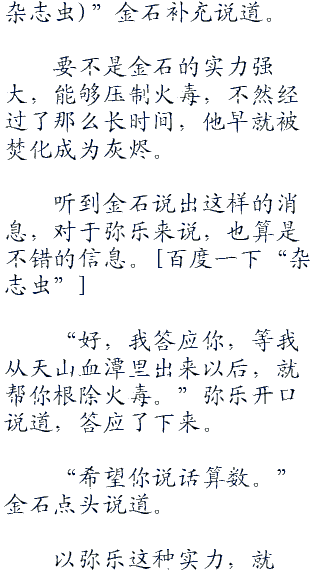 杂志虫)”金石补充说道。
要不是金石的实力强
大，能够压制火毒，不然经
过了那么长时间，他早就被
焚化成为灰烬。
听到金石说出这样的消
息，对于弥乐来说，也算是
不错的信息。[百度一下“杂
志虫”]
“好，我答应你，等我
从天山血潭里出来以后，就
帮你根除火毒。”弥乐开口
说道，答应了下来。
“希望你说话算数。”
金石点头说道。
以弥乐这种实力，就